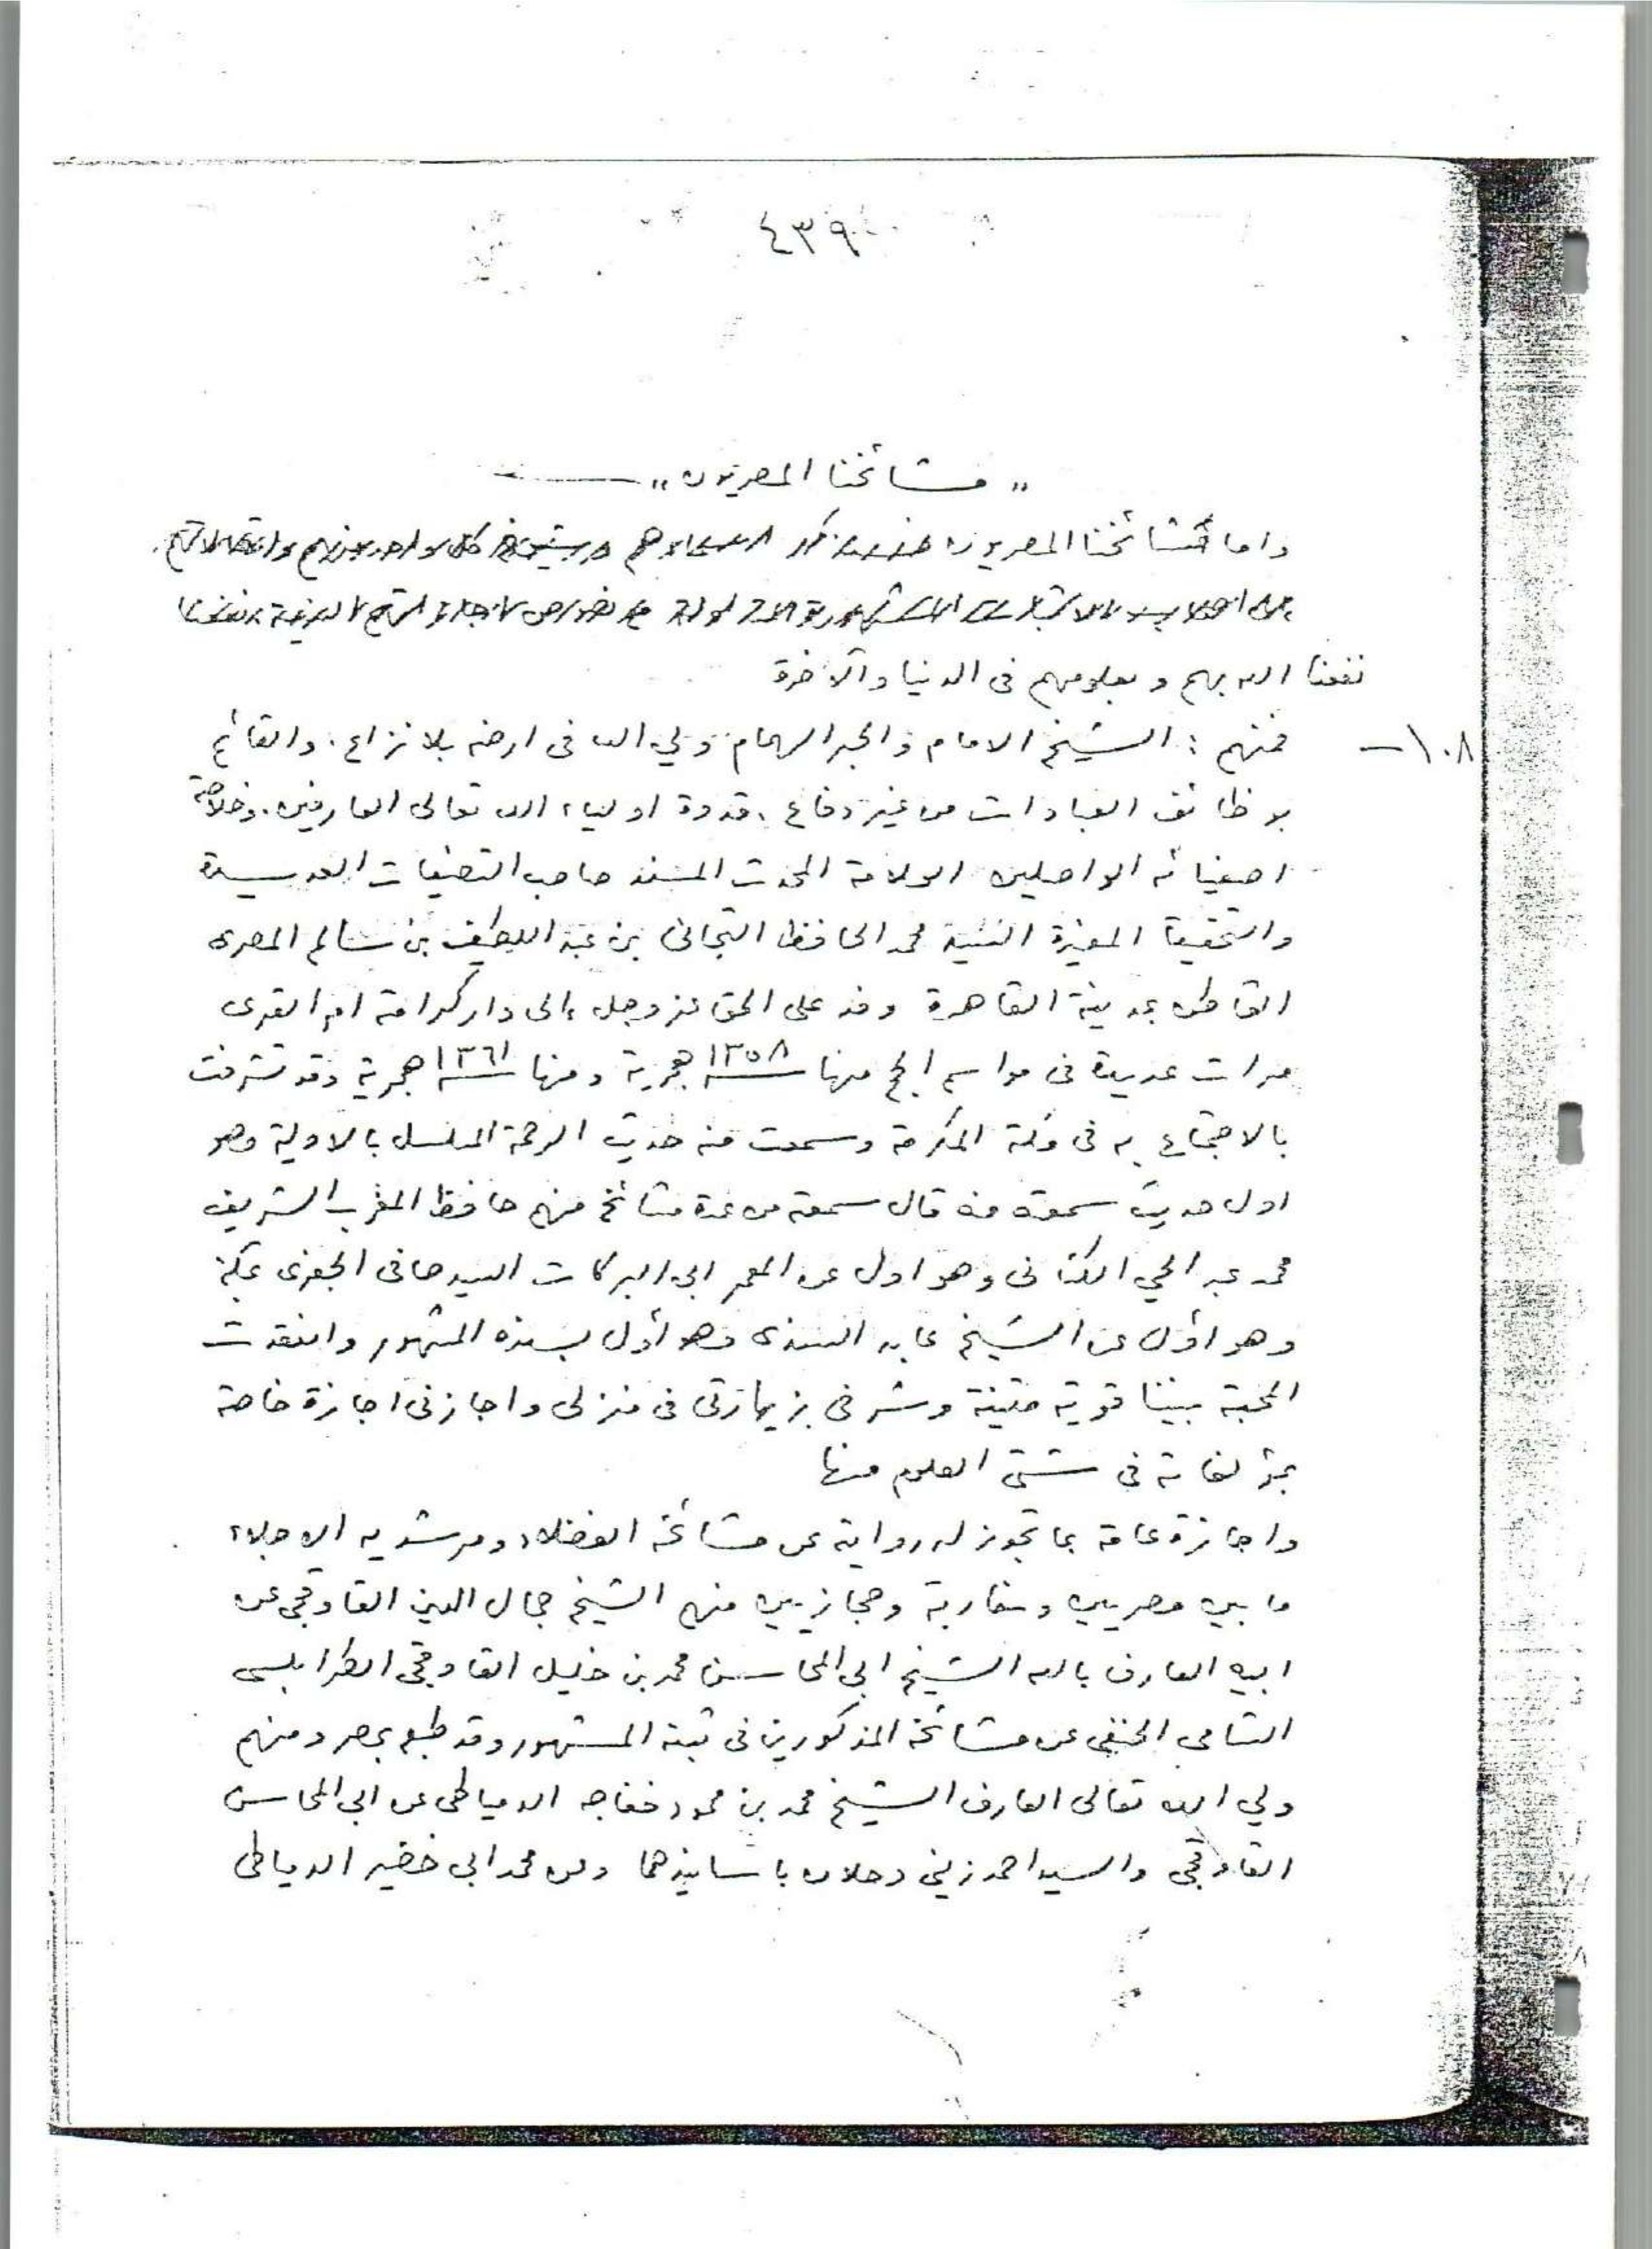 ٤٣٩
" مشائخنا المصريون "
واما مشائخنا المصريون
نفعنا الله بهم وبعلومهم فى الدنيا والآخرة
١٠٨ــ فمنهم : الشيخ الامام والحبر الهمام ولي الله فى ارضه بلا نزاع . والقائم
بوظائف العبادات من غير دفاع . قدوة اولياء الله تعالى العارفين . وخلاصة
اصفيائه الواصلين العلامة المحدث المسند صاحب التصنيفات العديدة
والتحقيقا المفيزة النفيسة محمد الحافظ التجانى بن عبد اللطيف بن سالم المصرى
القاطن بمدينة القاهرة وفد على الحق عز وجل الى دار كرامة ام القرى
مرات عديدة فى مواسم الحج منها سنة ١٣٥٨ هجرية ومنها سنة ١٣٦١ هجرية وقد تشرفت
بالاجتماع به فى مكة المكرمة وسمعت منه حديث الرحمة المسلسل بالاولية وهو
اول حديث سمعته منه قال سمعته من عدة مشائخ منهم حافظ المغرب الشريف
محمد عبد الحي الكتانى وهو اول عن المعمر ابى البركات السيد صافى الجفرى بمكة
وهو أول عن الشيخ عابد السندى وهو أول بسنده المشهور وانعقدت
المحبة بيننا قوية متينة وشرفنى بزيارتى فى منزلى واجازنى اجازة خاصة
بمؤلفاته فى شتى العلوم منها
واجازة عامة بما تجوز له روايته عن مشائخه الفضلاء ومرشديه الاجلاء
ما بين مصريين ومغاربة وحجازيين منهم الشيخ جمال الدين القاوقجى عن
ابيه العارف بالله الشيخ ابى المحاسن محمد بن خليل القاوقجى الطرابلسى
الشامى الحنفى عن مشائخه المذكورين فى ثبته المشهور وقد طبع بمصر ومنهم
ولي الله تعالى العارف الشيخ محمد بن محمود خفاجه الدمياطى عن ابى المحاسن
القاوقجى والسيد احمد زينى دحلان باسانيدهما وعن محمد ابى خضير الدمياطى